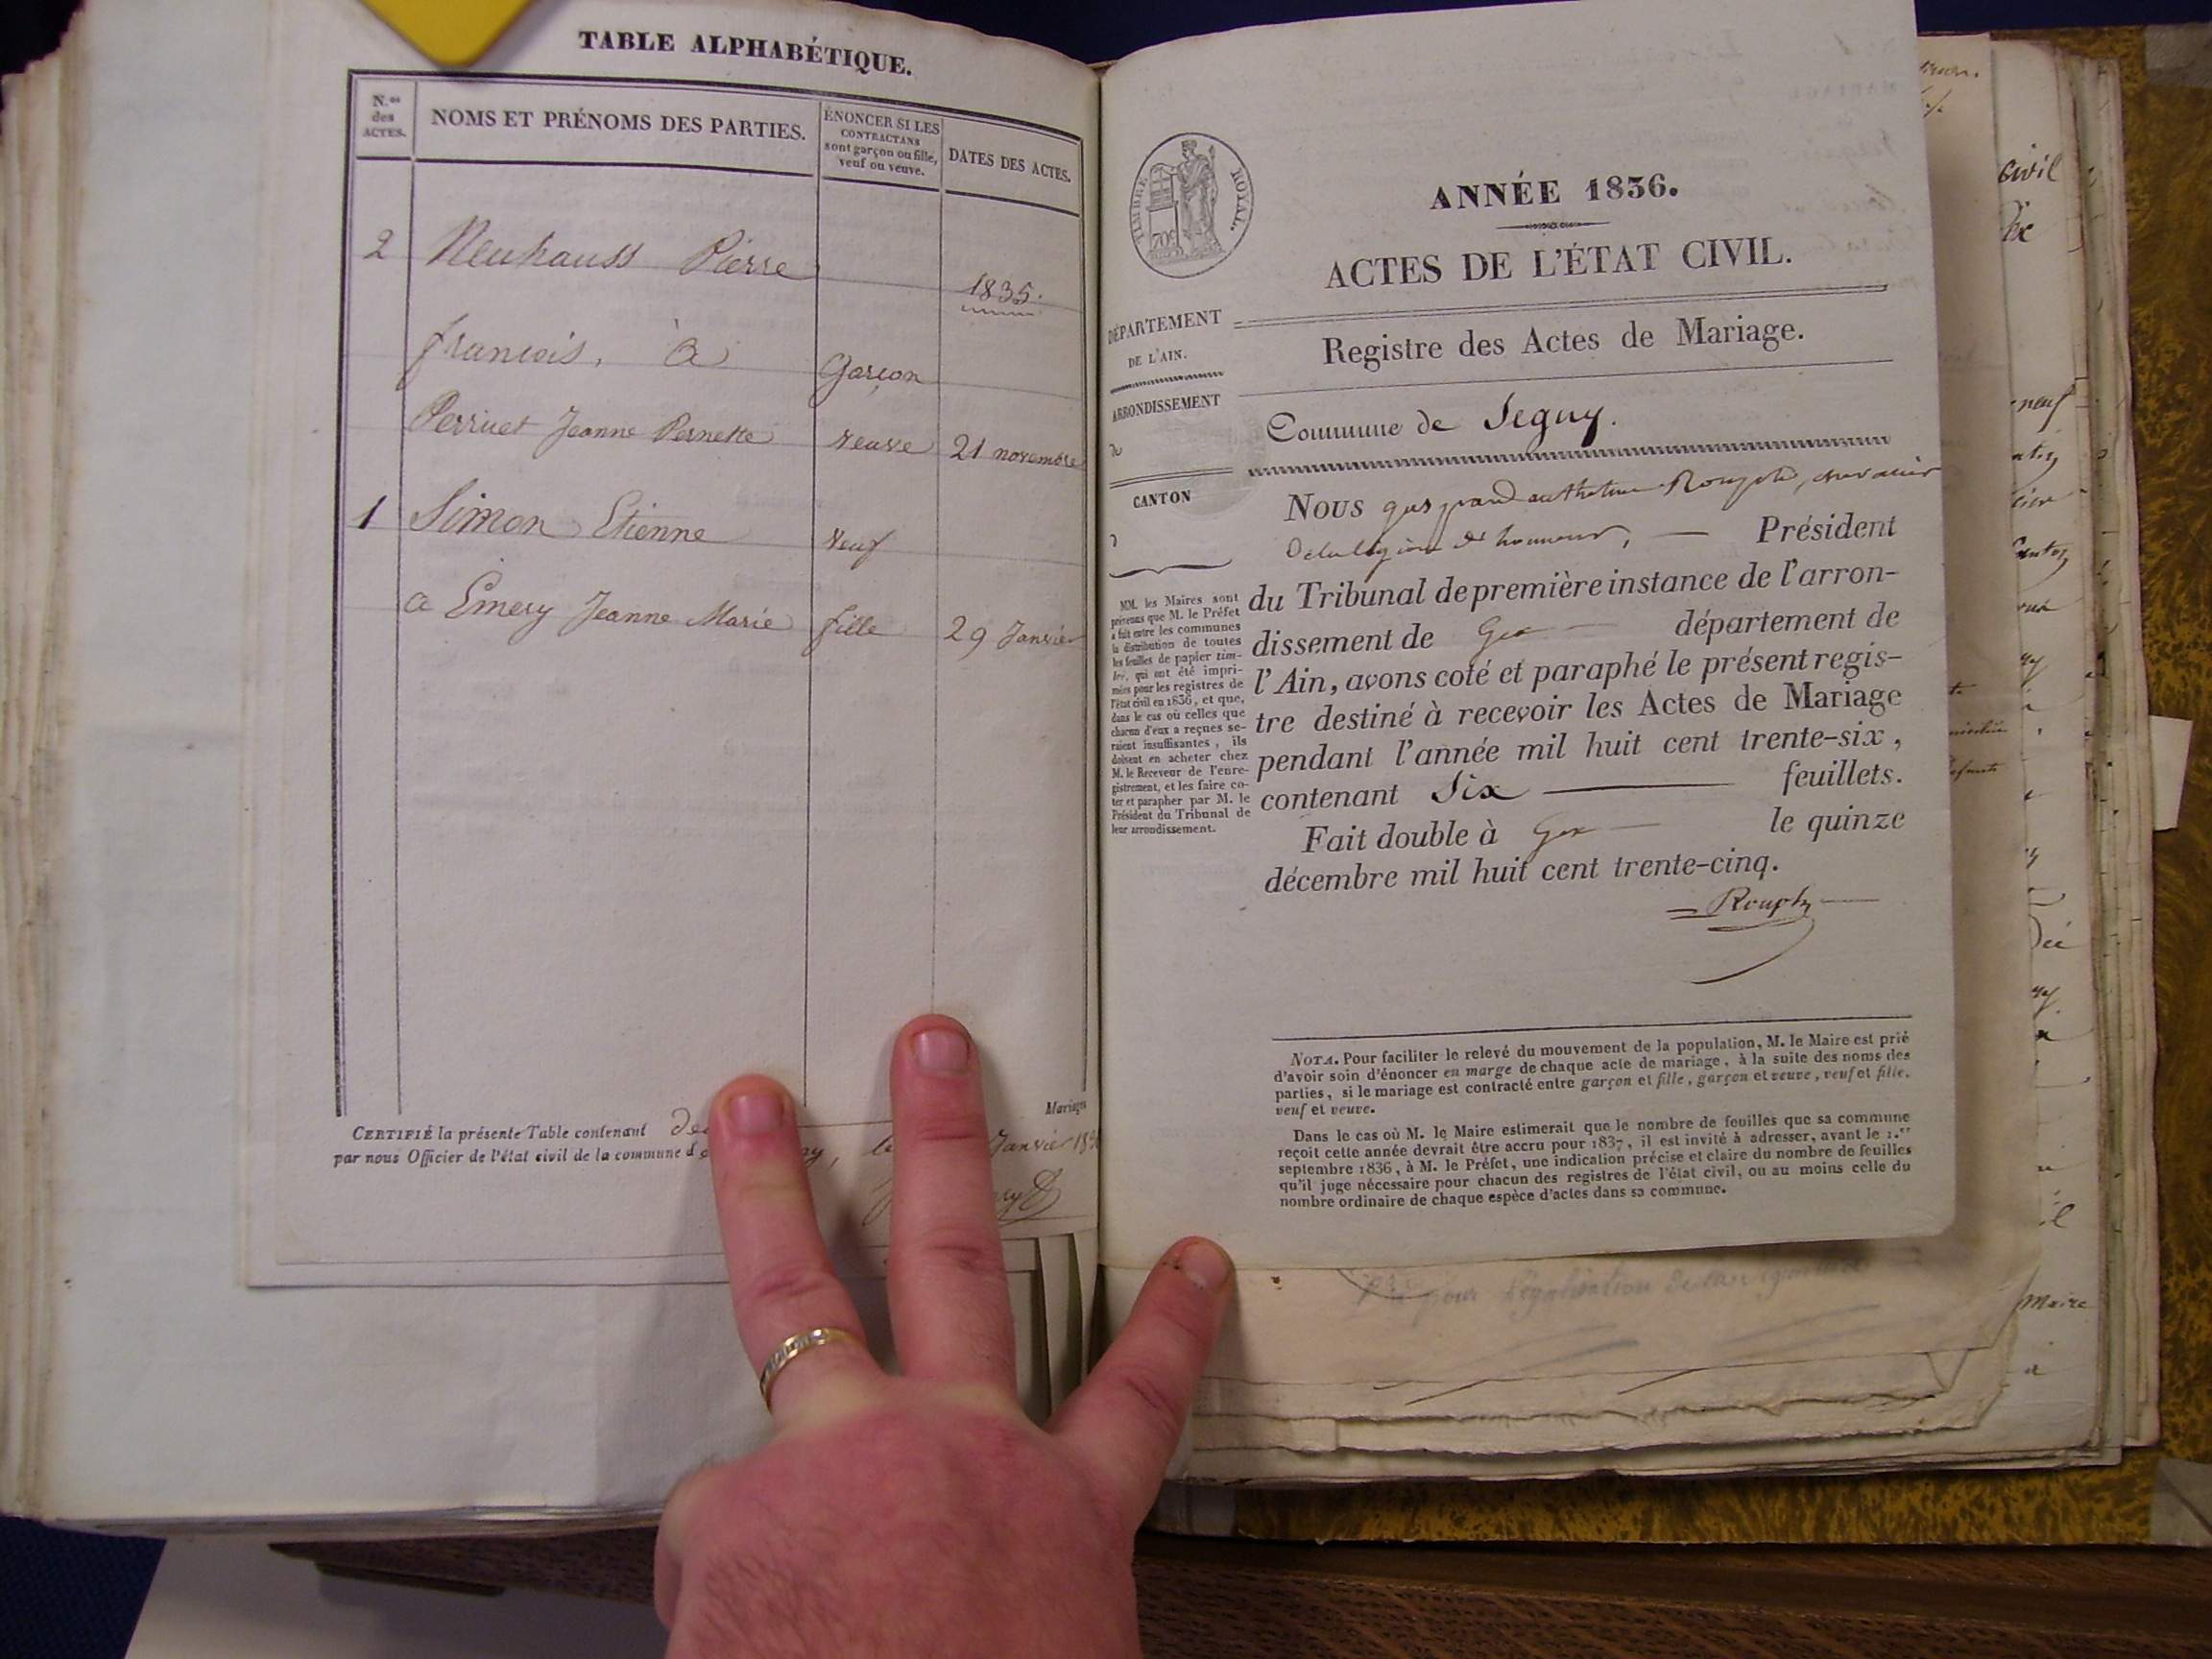 TABLE ALPHABÉTIQUE.
N.os des ACTES.
NOMS ET PRÉNOMS DES PARTIES.
ÉNONCER SI LES
CONTRACTANS
sont garçon ou fille,
veuf ou veuve.
DATES DES ACTES.
2 Neuhauss Pierre
1835.
francois, à Garçon
Perruet Jeanne Pernette veuve 21 novembre
1 Simon Etienne veuf
a Emery Jeanne Marie fille 29 Janvier
Mariages
CERTIFIÉ la présente Table contenant
par nous Officier de l'état civil de la commune d
le Janvier
TIMBRE ROYAL.
70c
ANNÉE 1836.
ACTES DE L'ÉTAT CIVIL.
DÉPARTEMENT
DE L'AIN.
Registre des Actes de Mariage.
ARRONDISSEMENT
d
Commune de Segny.
CANTON
d
Nous chevalier
de la légion d'honneur, — Président
du Tribunal de première instance de l'arron-
dissement de Gex — département de
l'Ain, avons coté et paraphé le présent regis-
tre destiné à recevoir les Actes de Mariage
pendant l'année mil huit cent trente-six,
contenant Six — feuillets.
Fait double à Gex — le quinze
décembre mil huit cent trente-cinq.
MM. les Maires sont
prévenus que M. le Préfet
a fait entre les communes
la distribution de toutes
les feuilles de papier tim-
bré, qui ont été impri-
mées pour les registres de
l'état civil en 1836, et que,
dans le cas où celles que
chacun d'eux a reçues se-
raient insuffisantes, ils
doivent en acheter chez
M. le Receveur de l'enre-
gistrement, et les faire co-
ter et parapher par M. le
Président du Tribunal de
leur arrondissement.
NOTA. Pour faciliter le relevé du mouvement de la population, M. le Maire est prié
d'avoir soin d'énoncer en marge de chaque acte de mariage, à la suite des noms des
parties, si le mariage est contracté entre garçon et fille, garçon et veuve, veuf et fille,
veuf et veuve.
Dans le cas où M. le Maire estimerait que le nombre de feuilles que sa commune
reçoit cette année devrait être accru pour 1837, il est invité à adresser, avant le 1.er
septembre 1836, à M. le Préfet, une indication précise et claire du nombre de feuilles
qu'il juge nécessaire pour chacun des registres de l'état civil, ou au moins celle du
nombre ordinaire de chaque espèce d'actes dans sa commune.
civil
neuf
maire